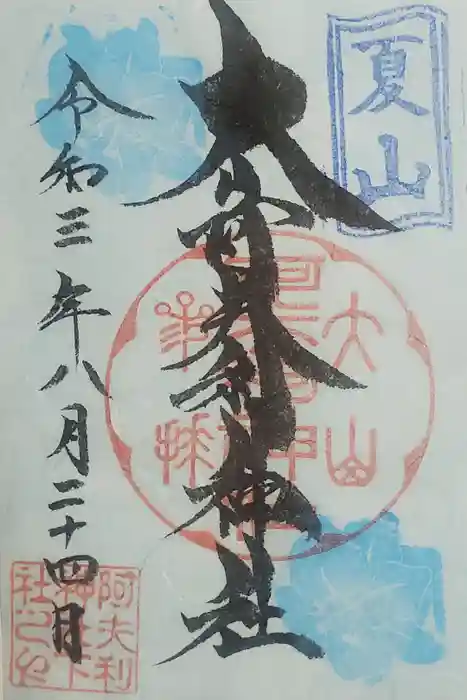 夏山
大山阿夫利神社
大山
阿夫利神社
令和三年八月二十四日
阿夫利
神社下
社之印